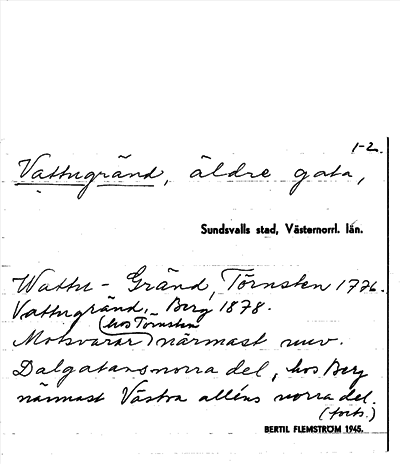 1-2.
Vattugränd, äldre gata,
Sundsvalls stad, Västernorrl. län.
Wattu - Gränd, Törnsten 1776.
Vattugränd, Berg 1878.
(hos Törnsten)
Motsvarar närmast nuv.
Dalgatans norra del, hos Berg
närmast Västra alléns norra del.
(forts.)
BERTIL FLEMSTRÖM 1945.